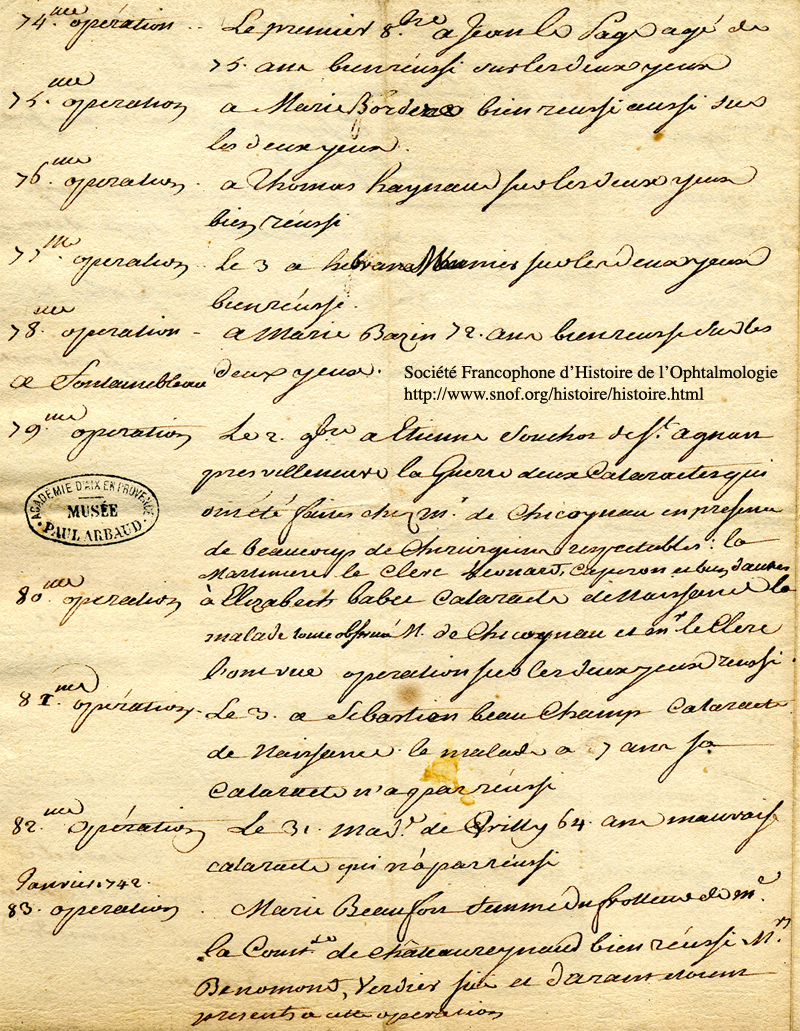 74.me opération .. Le premier 8.bre a Jean le Page agé de
75. ans bien réussi sur les deux yeux
75.me operation a Marie bien reussi aussi sur
les deux yeux.
76.me operation. a Thomas haynaud sur les deux yeux
bien réussi
77.me operation .. le 3 a sur les deux yeux
bien réussi.
78.me operation - a Marie Bazin 72. ans bien reussi sur les
a Fontainebleau deux yeux.
Société Francophone d'Histoire de l'Ophtalmologie
http://www.snof.org/histoire/histoire.html
79.me operation Le 2. 9bre a Etienne Souchos de St. agnan
pres villeneuve la Guerre deux Cataractes qui
ont été faites chez mr. de Chicoynau en presence
de beaucoup de Chirurgiens respectables. la
Martiniere le Clerc Caperon et bien d'autres
80.me operation à Elizabeth babee Cataracte de Naissance la
malade M. de Chicoynau et mr le Clerc
l'ont vue operation sur les deux yeux reussi.
81.me opération. Le 3. a Sébastien beau Champ Cataracte
de Naissance le malade a 7 ans sa
Cataracte n'a pas réussi
ACADÉMIE D'AIX EN PROVENCE
MUSÉE
PAUL ARBAUD
82.me opération Le 31. mad.e de 64. ans mauvaise
cataracte qui n'a pas réussi
Janvier. 1742.
83. operation . Marie Beaufort femme du frotteur de me.
la Comtsse de Châteaureynaud bien réussi Mrs
Benomond, Verdier et etoient
presents a cette operation